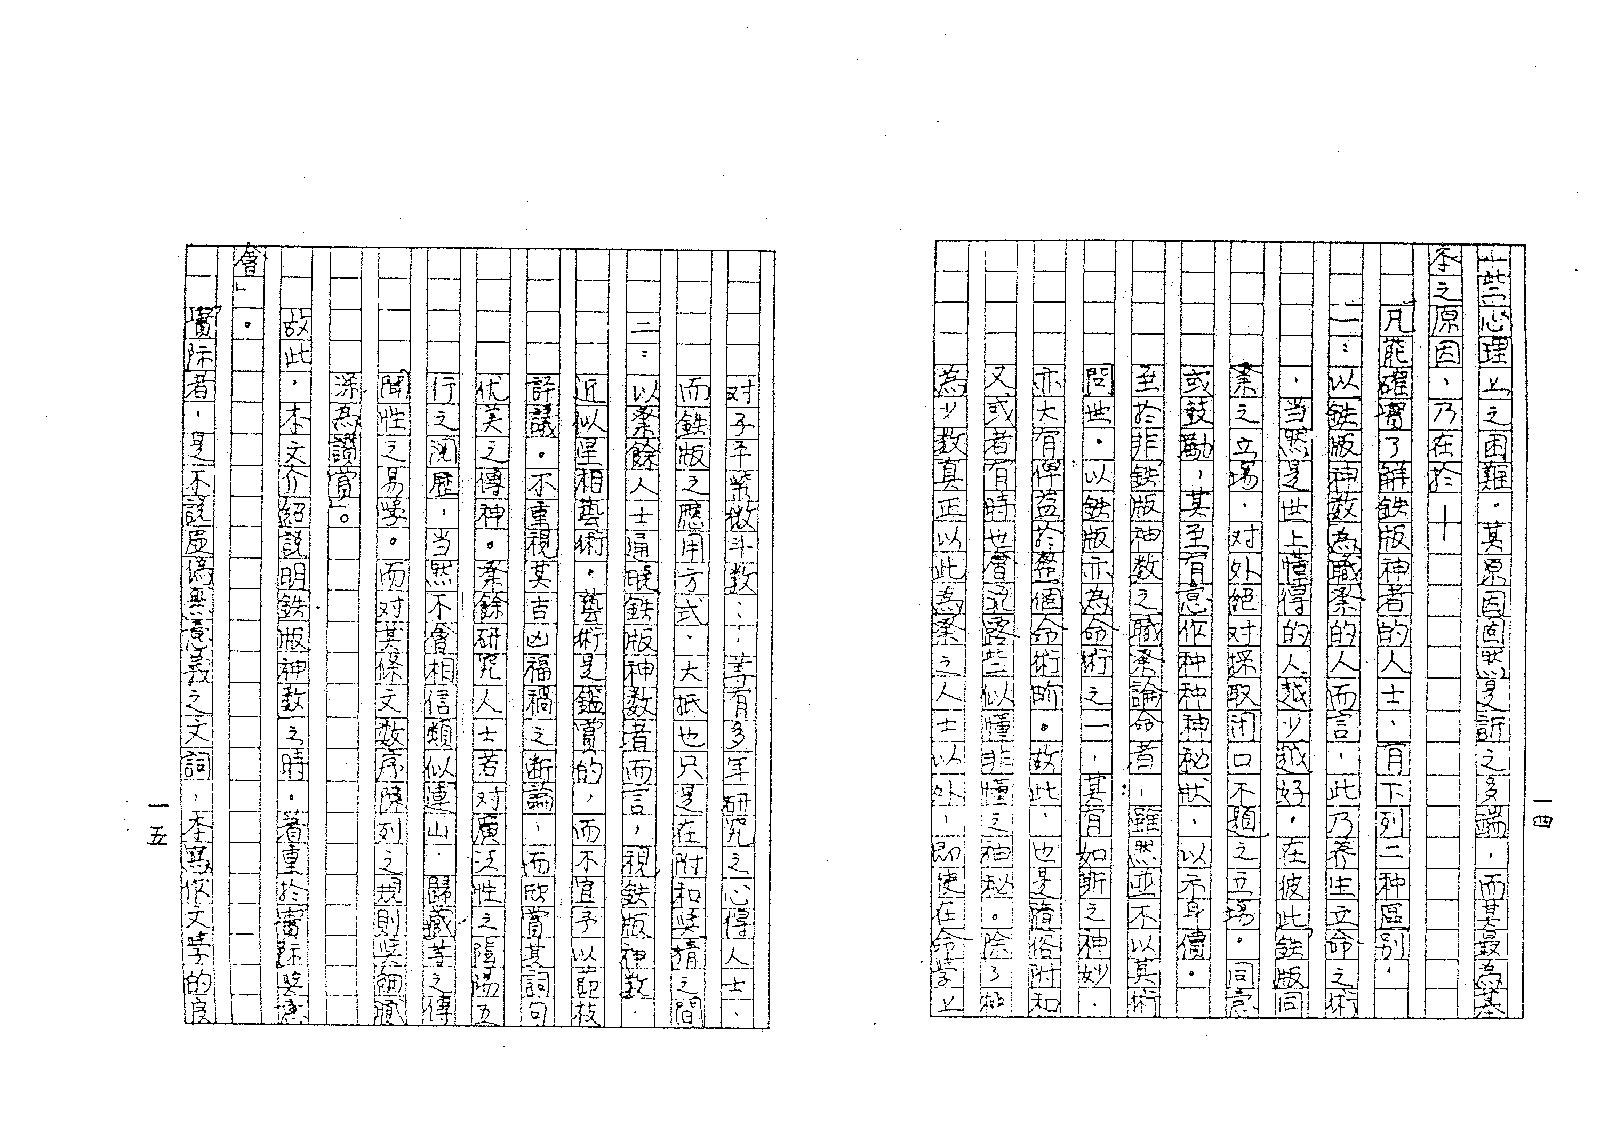 一些心理上之困難。其原因固然是許之多端，而其最為基
本之原因，乃在於—
凡能確實了解鉄版神者的人士，有下列二种區別，
一：以鉄版神数為職業的人而言，此乃养生立命之術
，当然是世上懂得的人越少越好，在彼此鉄版同
業之立場，对外絕对採取闭口不題之立場。同意
或鼓勵，甚至有意作种种神秘狀，以示身價。
至於非鉄版神数之職業論命者，雖然並不以其術
問世，以鉄版亦為命術之一，其有如斯之神妙，
亦大有俾益於整個命術畍。故此，也是隨俗附和
又或者有時也會透露些似懂非懂之神秘。除了極
為少数真正以此為業之人士以外，即使在命学上
一四
对子平紫微斗数……等有多年研究之心得人士，
而鉄版之應用方式，大抵也只是在附和與猜之間
二：以業餘人士通曉鉄版神数者而言，視鉄版神数，
近似星相藝術，藝術是鑑賞的，而不宜予以節枝
評議。不重視其吉凶福禍之断論，而欣賞其詞句
优美之傳神。業餘研究人士者对廣泛性之陰陽五
行之沉歷，当然不會相信類似連山，歸藏等之傳
聞性之易学。而对其條文数序陳列之規則與細膩
深為讚賞」。
故此，本文介紹説明鉄版神数之時，著重於實际與意
會」。
實际者，是不説虛偽無意義之文詞，本寫作文学的良
一五